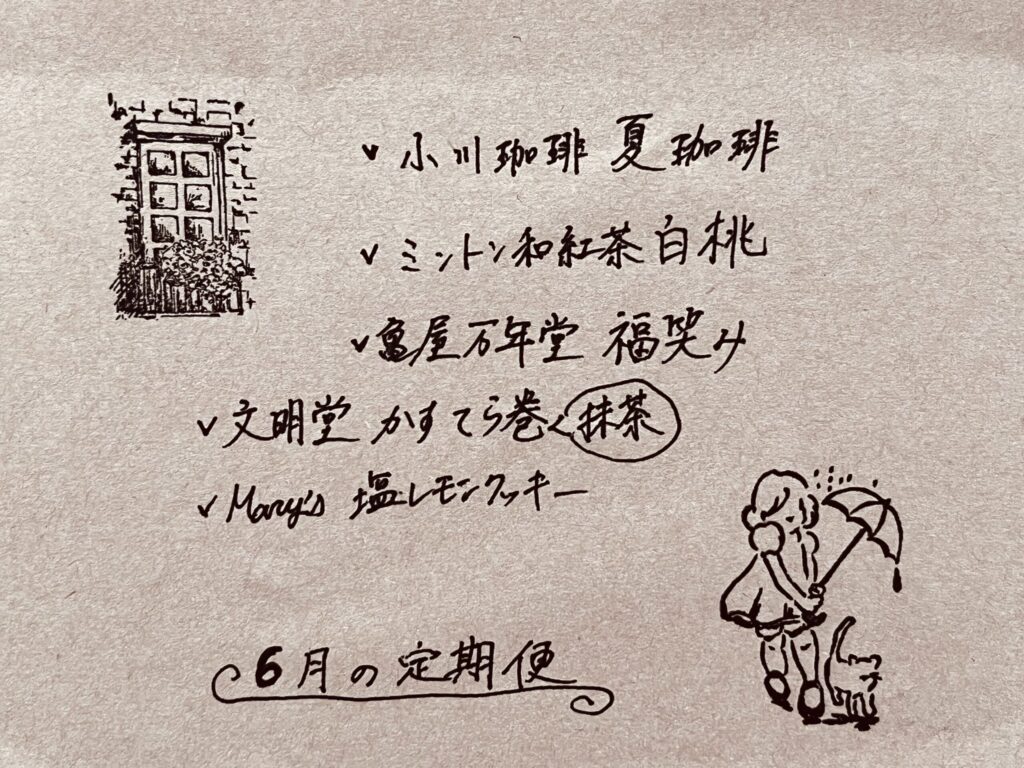 ✓ 小川珈琲 夏珈琲
✓ ミントン和紅茶 白桃
✓ 亀屋万年堂 福笑み
✓ 文明堂 かすてら巻く抹茶
✓ Mary's 塩レモンクッキー
6月の定期便